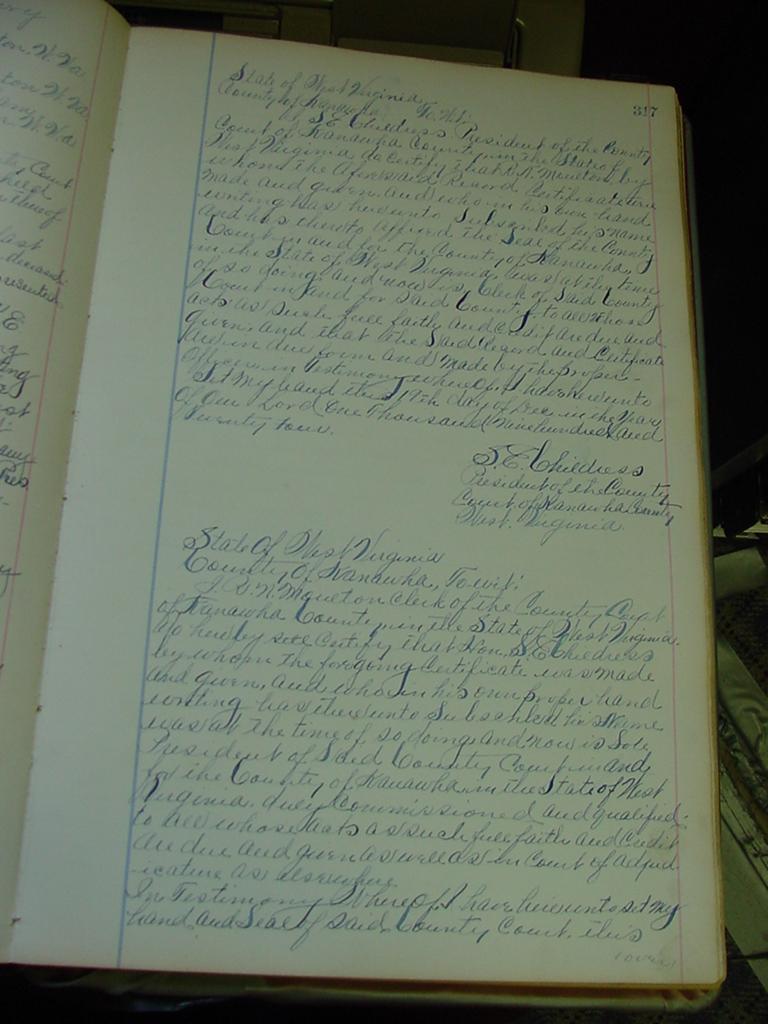 317
State of West Virginia
County of Kanawha To Wit:
I, S. E. Childress President of the County
Court of Kanawha County in the State of
West Virginia do Certify that R. N. Moulton, by
whom the Aforesaid Record Certificate were
made and given, and who in his own hand
writing has hereunto Subscribed his name
and has thereto affixed the Seal of the County
Court in and for the County of Kanawha,
in the State of West Virginia, was at the time
of so doing and now is, Clerk of Said County
Court in and for Said County, to all whose
acts as such full faith and Credit are due and
given, and that the Said Record and Certificate
are in due form and made by the proper-
Officer. in Testimony whereof I have hereunto
Set My hand this 19th day of Dec. in the Year
of Our Lord One Thousand Nine hundred and
Twenty four.
S. E. Childress
President of the County
Court of Kanawha County
West. Virginia
State Of West Virginia
County, Of Kanawha, To wit:
I. R. N. Moulton Clerk of the County Court
of Kanawha County, in the State of West Virginia.
do hereby Certify that Hon. S. E. Childress
by whom the forgoing Certificate was made
and given, and who in his own proper hand
writing has thereunto Subscribed his Name
was at the time of so doing and now is Sole
President of Said County Court in and
for the County of Kanawha, in the State of West
Virginia. duly Commissioned and qualified:
to all whose Acts as such full faith and Credit
are due and given as well as in Court of adjud-
icature as elsewhere.
In Testimony Whereof I have hereunto set my
hand and Seal of Said County Court this
(over)